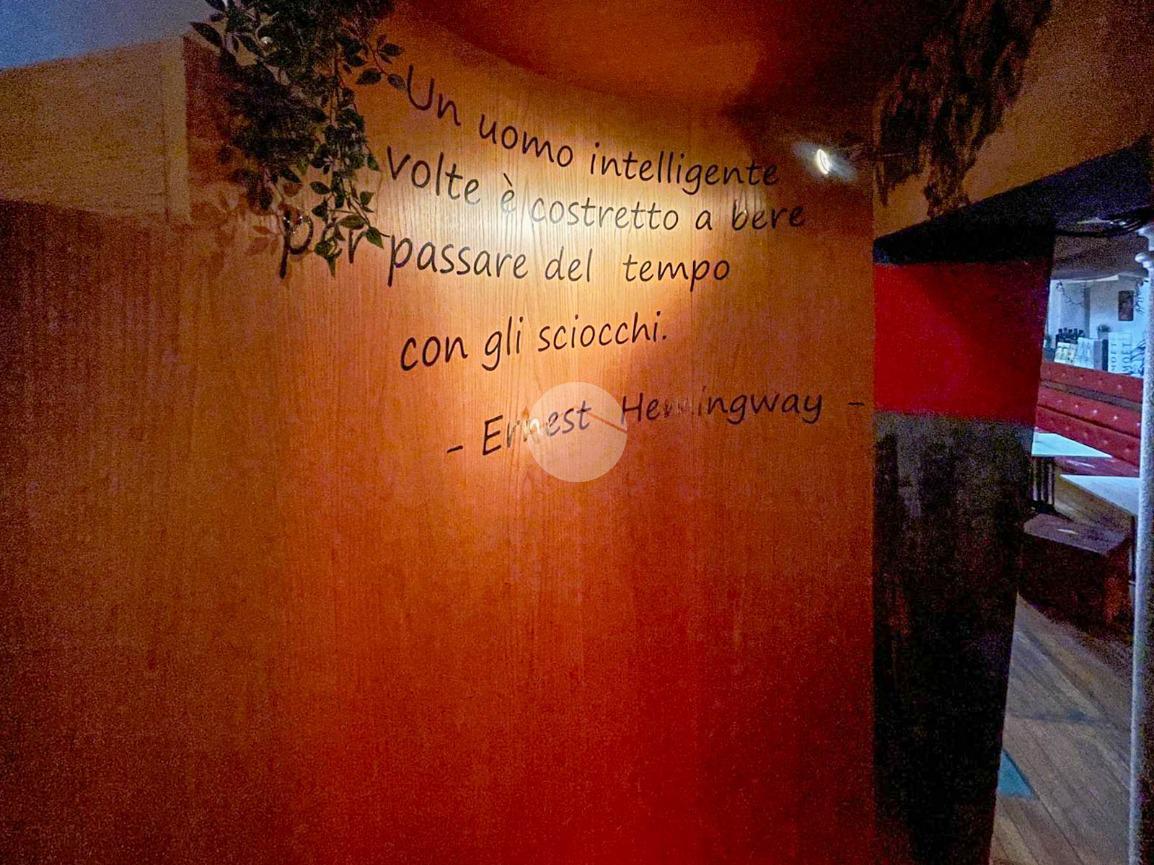 Un uomo intelligente
volte è costretto a bere
per passare del tempo
con gli sciocchi.
- Ernest Hemingway -